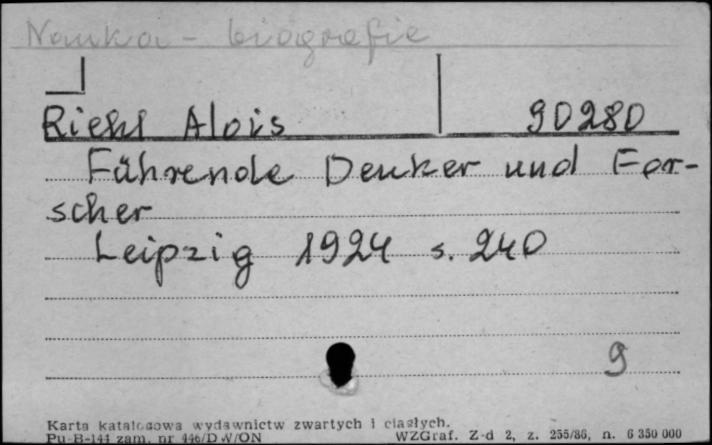 Nauka - biografie
Riehl Alois 90280
Führende Denker und For-
scher
Leipzig 1924 s. 240
9
Karta katalogowa wydawnictw zwartych i ciągłych.
Pu-B-144 zam. nr 446/DW/ON WZGraf. Z-d 2, z. 255/86, n. 6 350 000